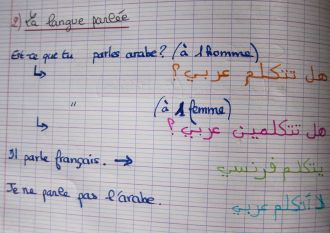 2) La langue parlée
Est-ce que tu parles arabe? (à 1 homme)
↳ هل تتكلم عربي ؟
" (à 1 femme)
↳ هل تتكلمين عربي ؟
Il parle français. → يتكلم فرنسي
Je ne parle pas l'arabe. لا أتكلم عربي